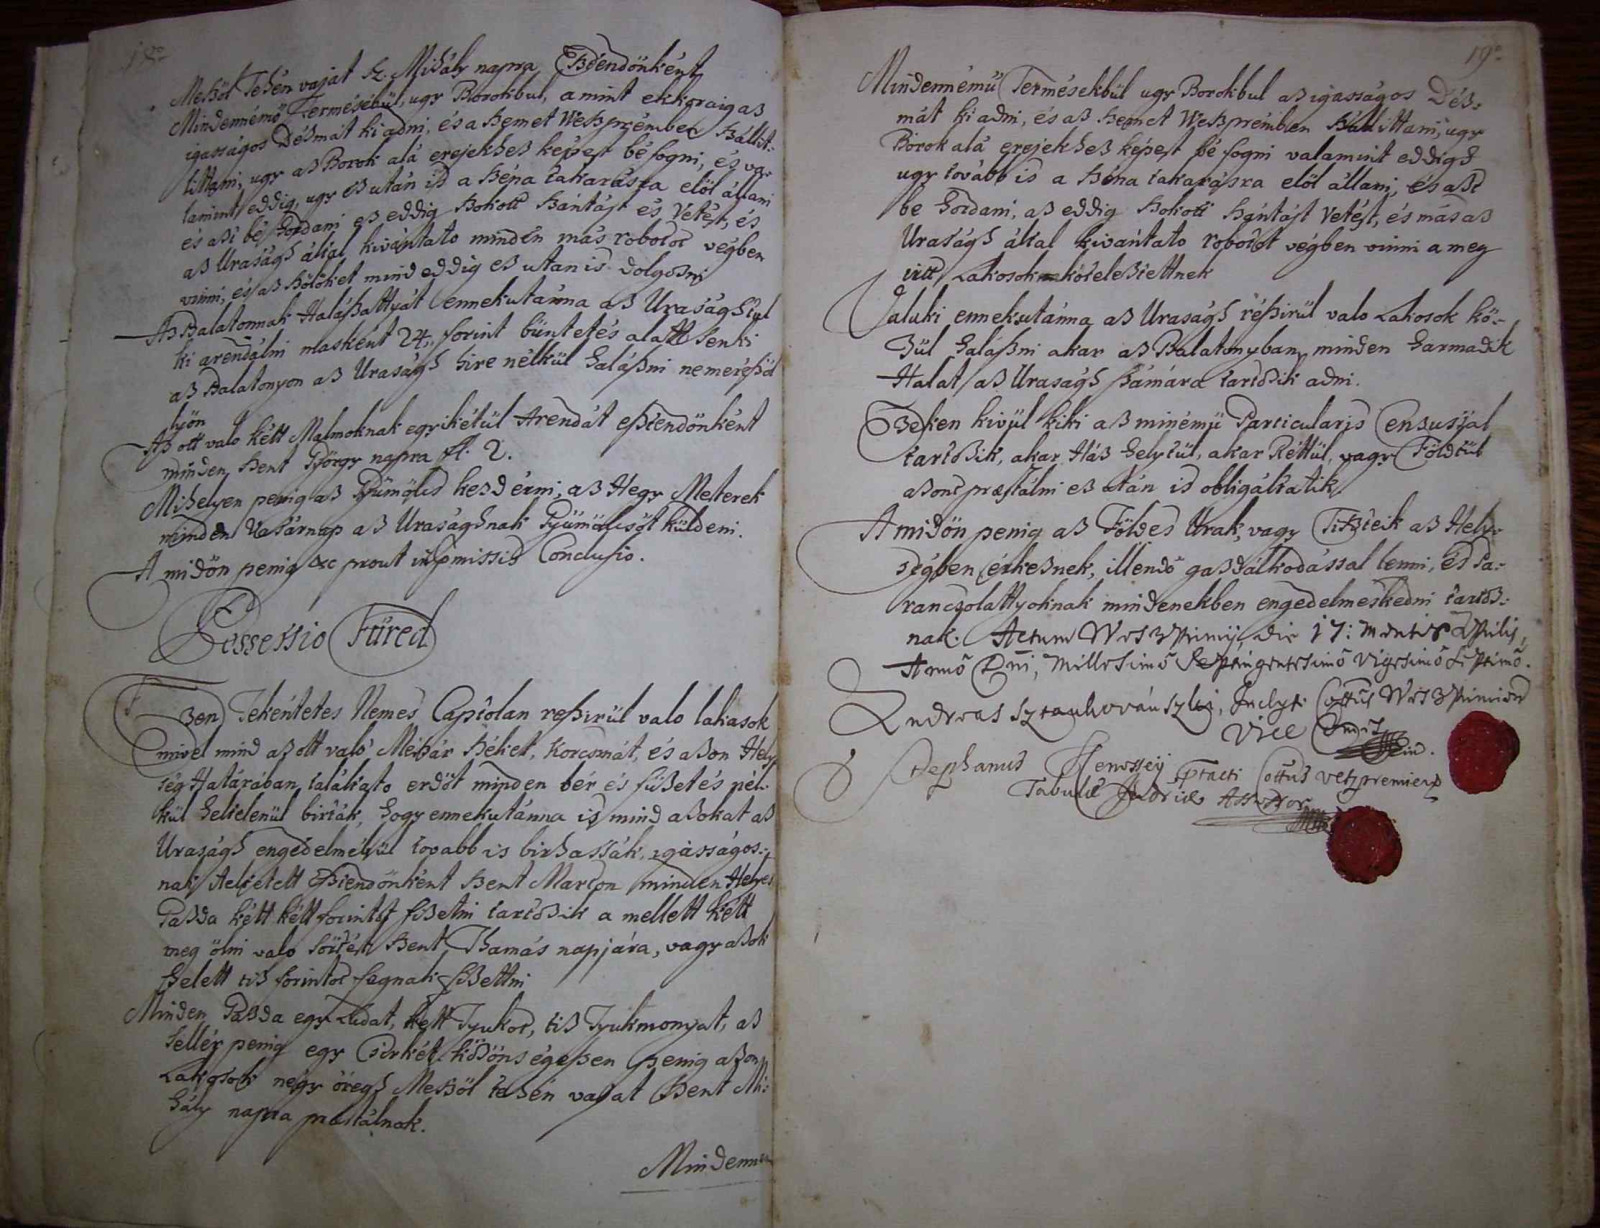 Meßöl Tehén vajat Sz. Mihály napra Eßtendönként
Mindennémö Termésébül, ugy Borokbul, a mint ekkoraig aß
igasságos Déßmát ki adni, és a Bemet Weßprémben Bállit-
tittani, ugy aß Borok alá erejekheß képest bé fogni, es va-
lamint eddig, ugy eß után is a Bena takarásra elöl állani
és aßt bé hordani eß eddig Bokott Bántást és Vetést, és
aß Uraságh által kivántato mindén más robotot végben
vinni, és aß Bölöket mind eddig eß utan is dolgoßni
Aß Balatonnak Haláßattyát ennekutánna aß Uraságh tul
ki arendálni masként 24. forint büntetés alatt Senki
aß Balatonyon aß Uraságh hire nélkül haláßni ne meréßöl
lyön
Aß ott valo kétt Malmoknak egyikétül Arendát eßtendönként
minden Bent György napra fl. 2.
Mihelyen penig aß Gyümölcs keßd érni, aß Hegy Mesterek
minden Vasárnap aß Urasághnak Gyümölcsöt küldeni.
A midön penig &c prout in præmissis Conclusio.
Possessio Füred
Eßen Tekéntetes Nemes Captolan reßirül valo lakasok
mivel mind aß ott való Méßár Béket, Korcsmát, és aßon Hely
ség Határában találtato erdöt minden bér és fißetés nél-
kül heltelenül birták, hogy ennekutánna is mind aßokat aß
Uraságh engedelmébül tovabb is birhassák, igasságos-
nak itéltetett Eßtendönként Bent Marton minden Helyes
Gaßda kétt kétt forintot fißetni tartoßik a mellett kétt
meg ölni valo Sörtést Bent Thamás napjára, vagy aßok
helett tiß forintot fognak fißettni
Minden Gaßda egy Ludat, kett Tyukot, tiß Tyukmonyat, aß
Sellér penig egy Csirkét, köößönségeßen penig aßon
Lakosok négy öregh Meßöl tehén vajat Bent Mi-
hály napra præstálnak.
Mindenne
19.
Mindennémü Termésekbül ugy Borokbul aß igasságos Déß-
mát ki adni, és aß Bemet Weßprémben Bállittani, ugy
Borok alá erejekheß képest bé fogni valamint eddigh
ugy tovább is a Béna takarásra elöl állani, és aßt
be hordani, aß eddig Bokott Bántást Vetést, és más aß
Uraságh által kivántato robotot végben vinni a meg
irtt Lakosok köteleßtettnek
Valaki ennekutánna aß Uraságh réßirül valo Lakosok kö-
ßül haláßni akar aß Balatonyban, minden harmadik
Halat aß Uraságh Bámára tartoßik adni.
Eßeken kivül kiki aß minémü Particularis Censussal
tartoßik, akar Háß helytül, akar Réttül, vagy Földtül
aßont præstálni eß után is obligáltatik
A midön penig aß Földes Urak, vagy Tißteik aß Hely-
ségben érkeßnek, illendö gaßdálkodással lenni, és Pa-
ranczolattyoknak mindenekben engedelmeskedni tartoß-
nak. Actum Weszprimÿ, die 17: Mensis Aprilis,
Anno Dni, Millesimo Septingentesimo Vigesimo Septimo.
Andreas Sztankovánszky, Inclyti Cottus Weszprimien
Vice
Stephanus
Tabulæ Judriæ Assessor